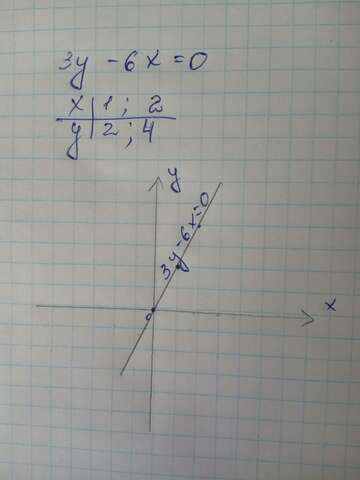 3y - 6x = 0
x | 1 ; 2
y | 2 ; 4
y
3y-6x=0
0
x